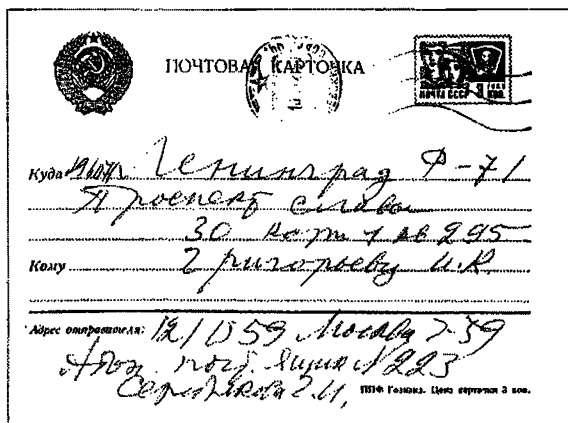 ПОЧТОВАЯ КАРТОЧКА
ПОЧТА СССР
Куда Ленинград Ф-71
Проспект Славы
30 корп 1 кв 295
Кому Григорьеву И.К.
Адрес отправителя: Москва
почт. ящик N 223
Г.И.
ППФ Гознака. Цена карточки 3 коп.